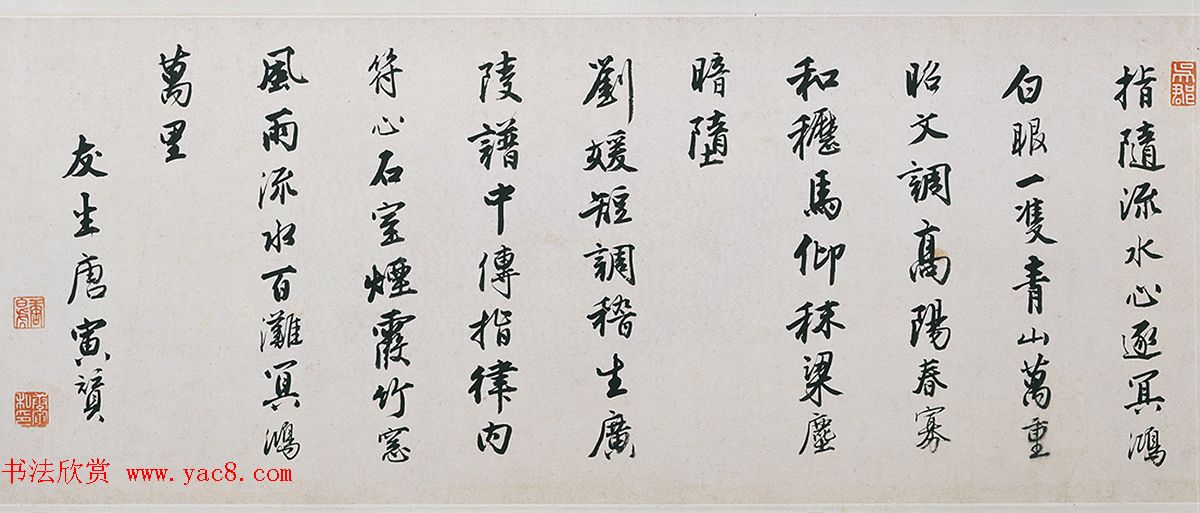 吳郡
指隨流水心逐冥鴻
白眼一雙青山萬重
昭文調高陽春寡
和櫪馬仰秣梁塵
暗墮
劉媛短調嵇生廣
陵譜中傳指律內
符心石室煙霞竹窓
風雨流水百灘冥鴻
萬里
友生唐寅贊
书法欣赏 www.yac8.com